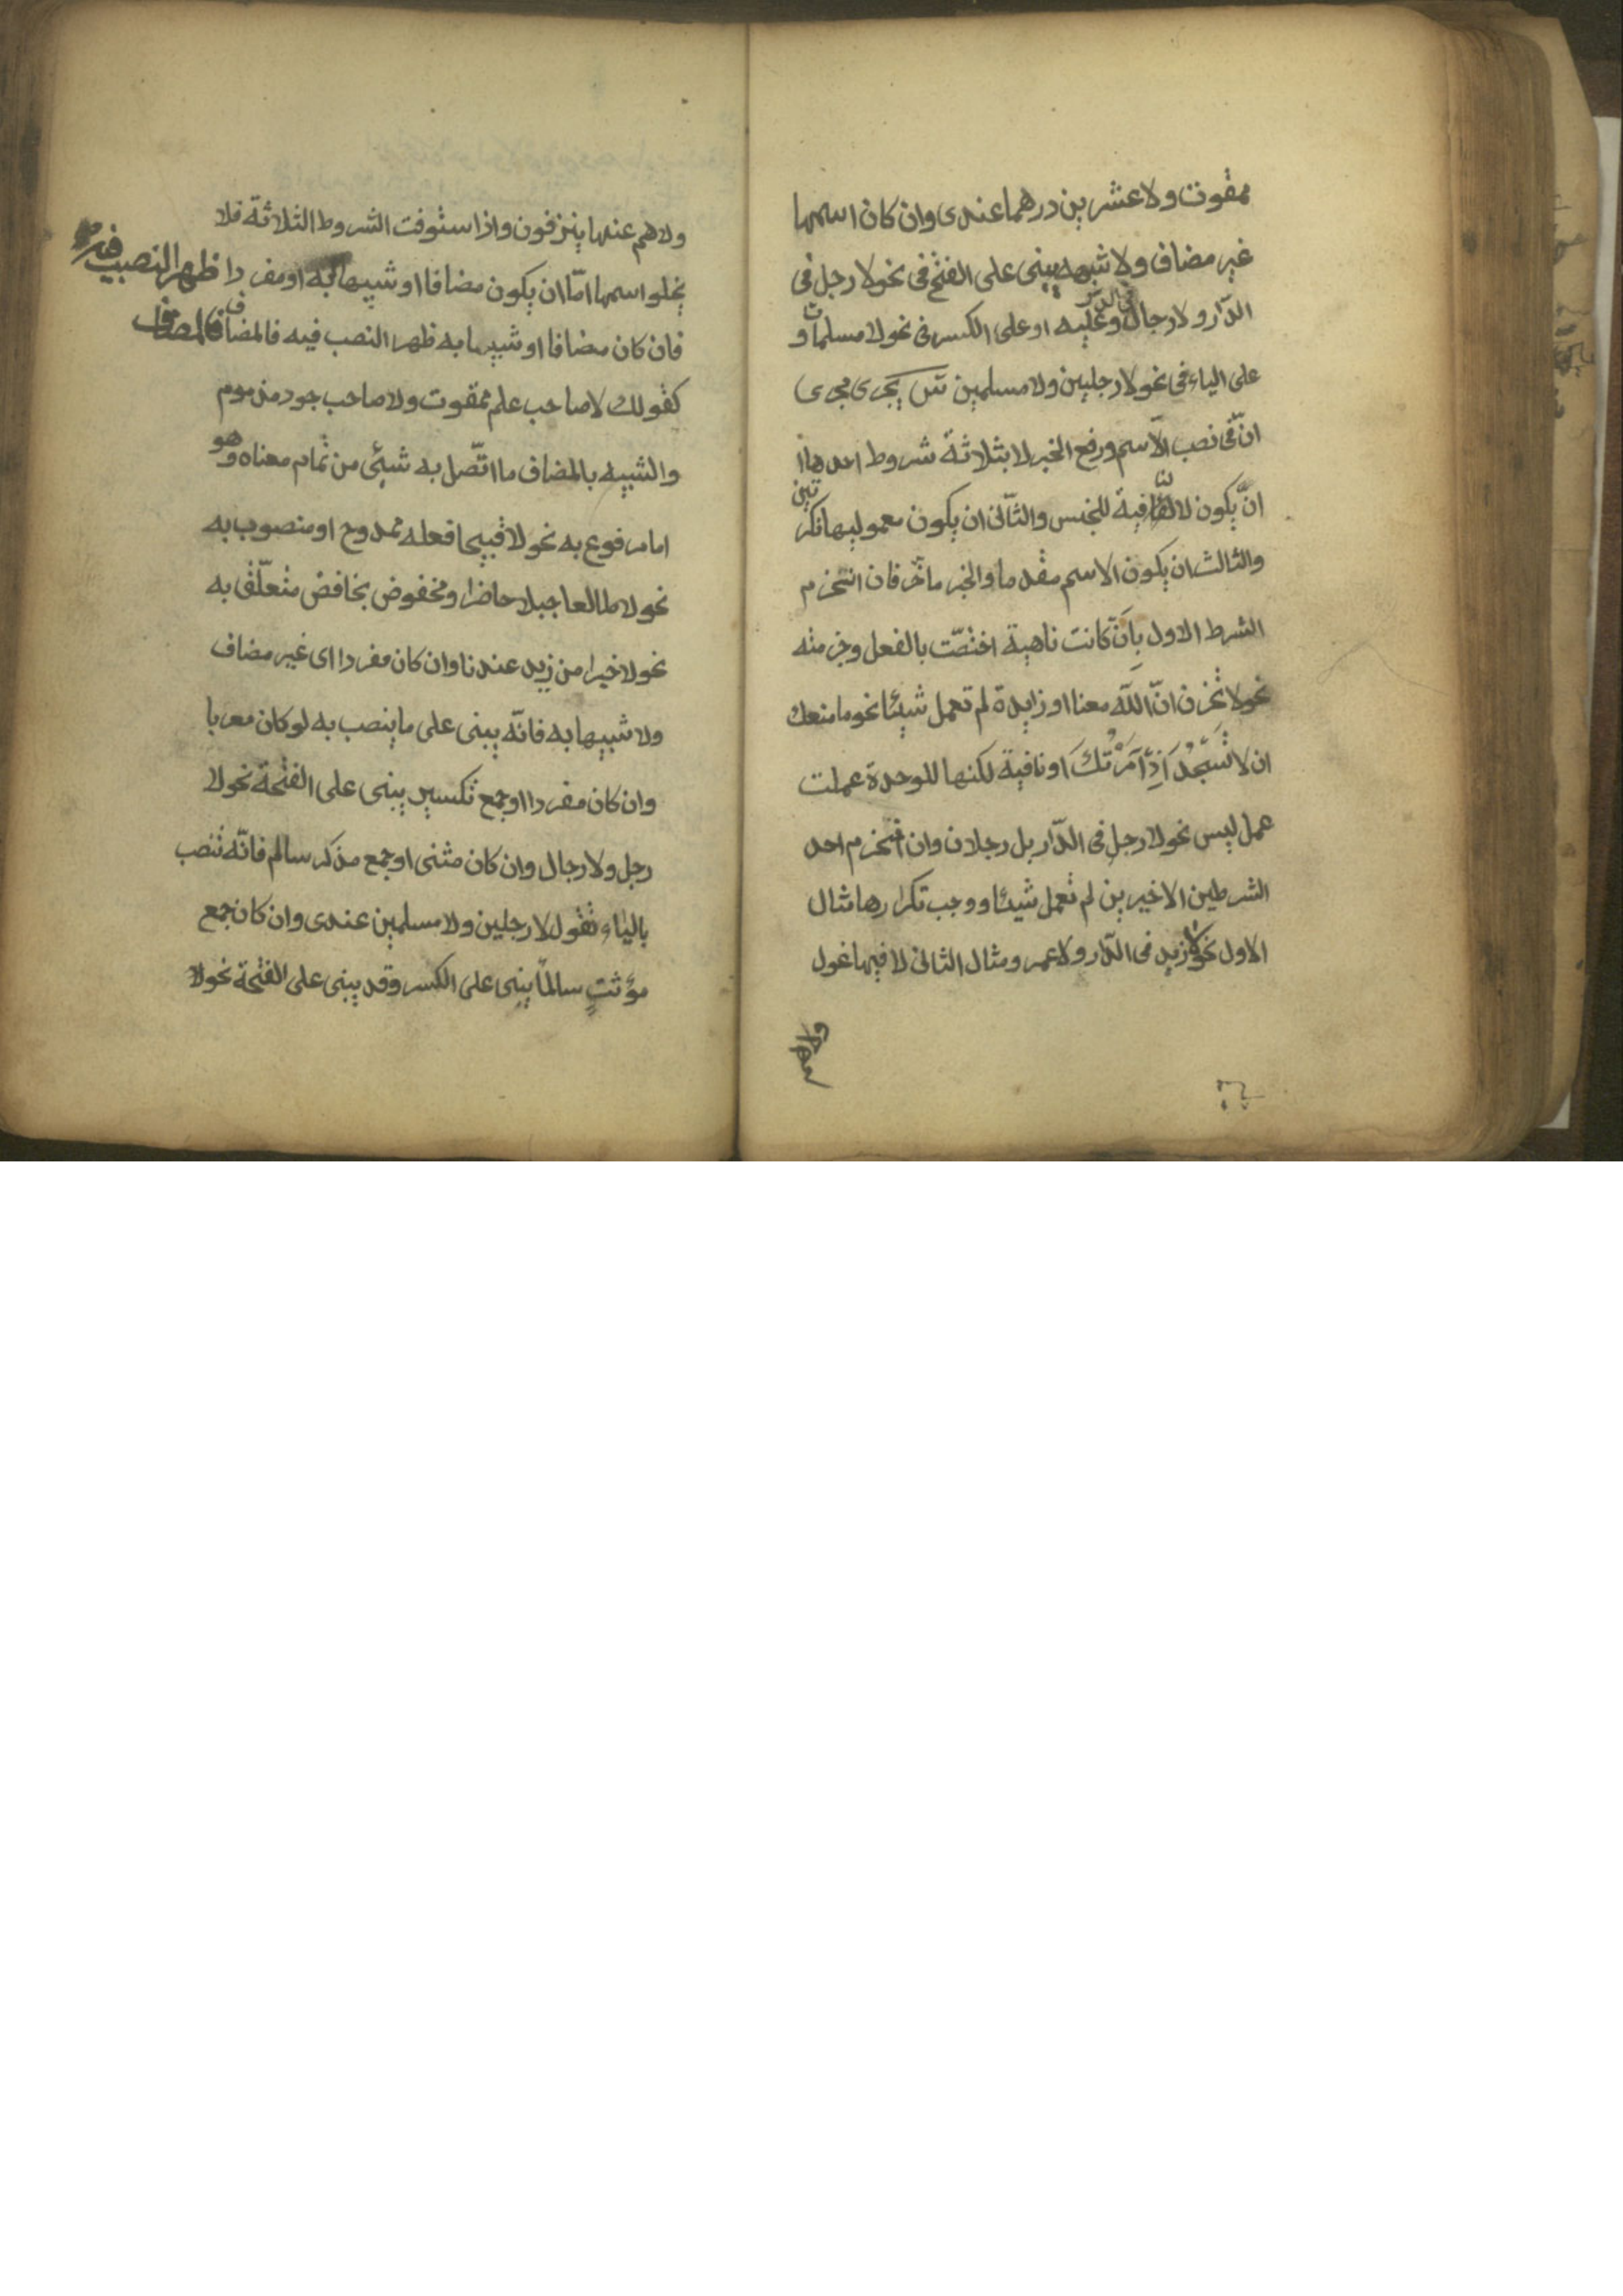 ممقوت ولا عشرين درهما عندى وان كان اسمها
غير مضاف ولا شبهه يبنى على الفتح فى نحو لا رجل فى
الدّار ولا رجال فى الدار وعليه او على الكسر فى نحو لا مسلمات و
على الياء فى نحو لا رجلين ولا مسلمين يجرى مجرى
انّ فى نصب الاسم ورفع الخبر لا بثلاثة شروط احدها
انّ يكون لا النافية للجنس والثّانى ان يكون معموليها نكرتين
والثالث ان يكون الاسم مقدما والخبر ماخّر فان انخزم
الشرط الاول بان كانت ناهية اختصّت بالفعل وجزمته
نحو لا تخزن انّ اللّه معنا او زايدة لم تعمل شيئا نحو ما منعك
ان لا تَسْجُدَ اِذْ اَمَرْتُكَ او نافية لكنها للوحدة عملت
عمل ليس نحو لا رجل فى الدّار بل رجلان وان انخزم احد
الشرطين الاخيرين لم تعمل شيئا ووجب تكرارها مثال
الاول نحو لا زيد فى الدّار ولا عمر ومثال الثانى لا فيها غول
ولا هم عنها ينزفون واذا استوفت الشروط الثلاثة فلا
يخلو اسمها امّا ان يكون مضافا او شبيها به او مفردا ظهر النصب فيه
فان كان مضافا او شبيها به ظهر النصب فيه فالمضاف فالمضاف
كقولك لا صاحب علم ممقوت ولا صاحب جود مذموم
والشبيه بالمضاف ما اتّصل به شيئى من تمام معناه وهو
اما مرفوع به نحو لا قبيحا فعله ممدوح او منصوب به
نحو لا طالعا جبلا حاضرا ومخفوض بخافض متعلّق به
نحو لا خيرا من زيد عندنا وان كان مفردا اى غير مضاف
ولا شبيها به فانّه يبنى على ما ينصب به لو كان معربا
وان كان مفردا او جمع تكسير يبنى على الفتحة نحو لا
رجل ولا رجال وان كان مثنى او جمع مذكر سالم فانّه تنصب
بالياء تقول لا رجلين ولا مسلمين عندى وان كان جمع
مؤنثٍ سالمًا يبنى على الكسر وقد يبنى على الفتحة نحو لا